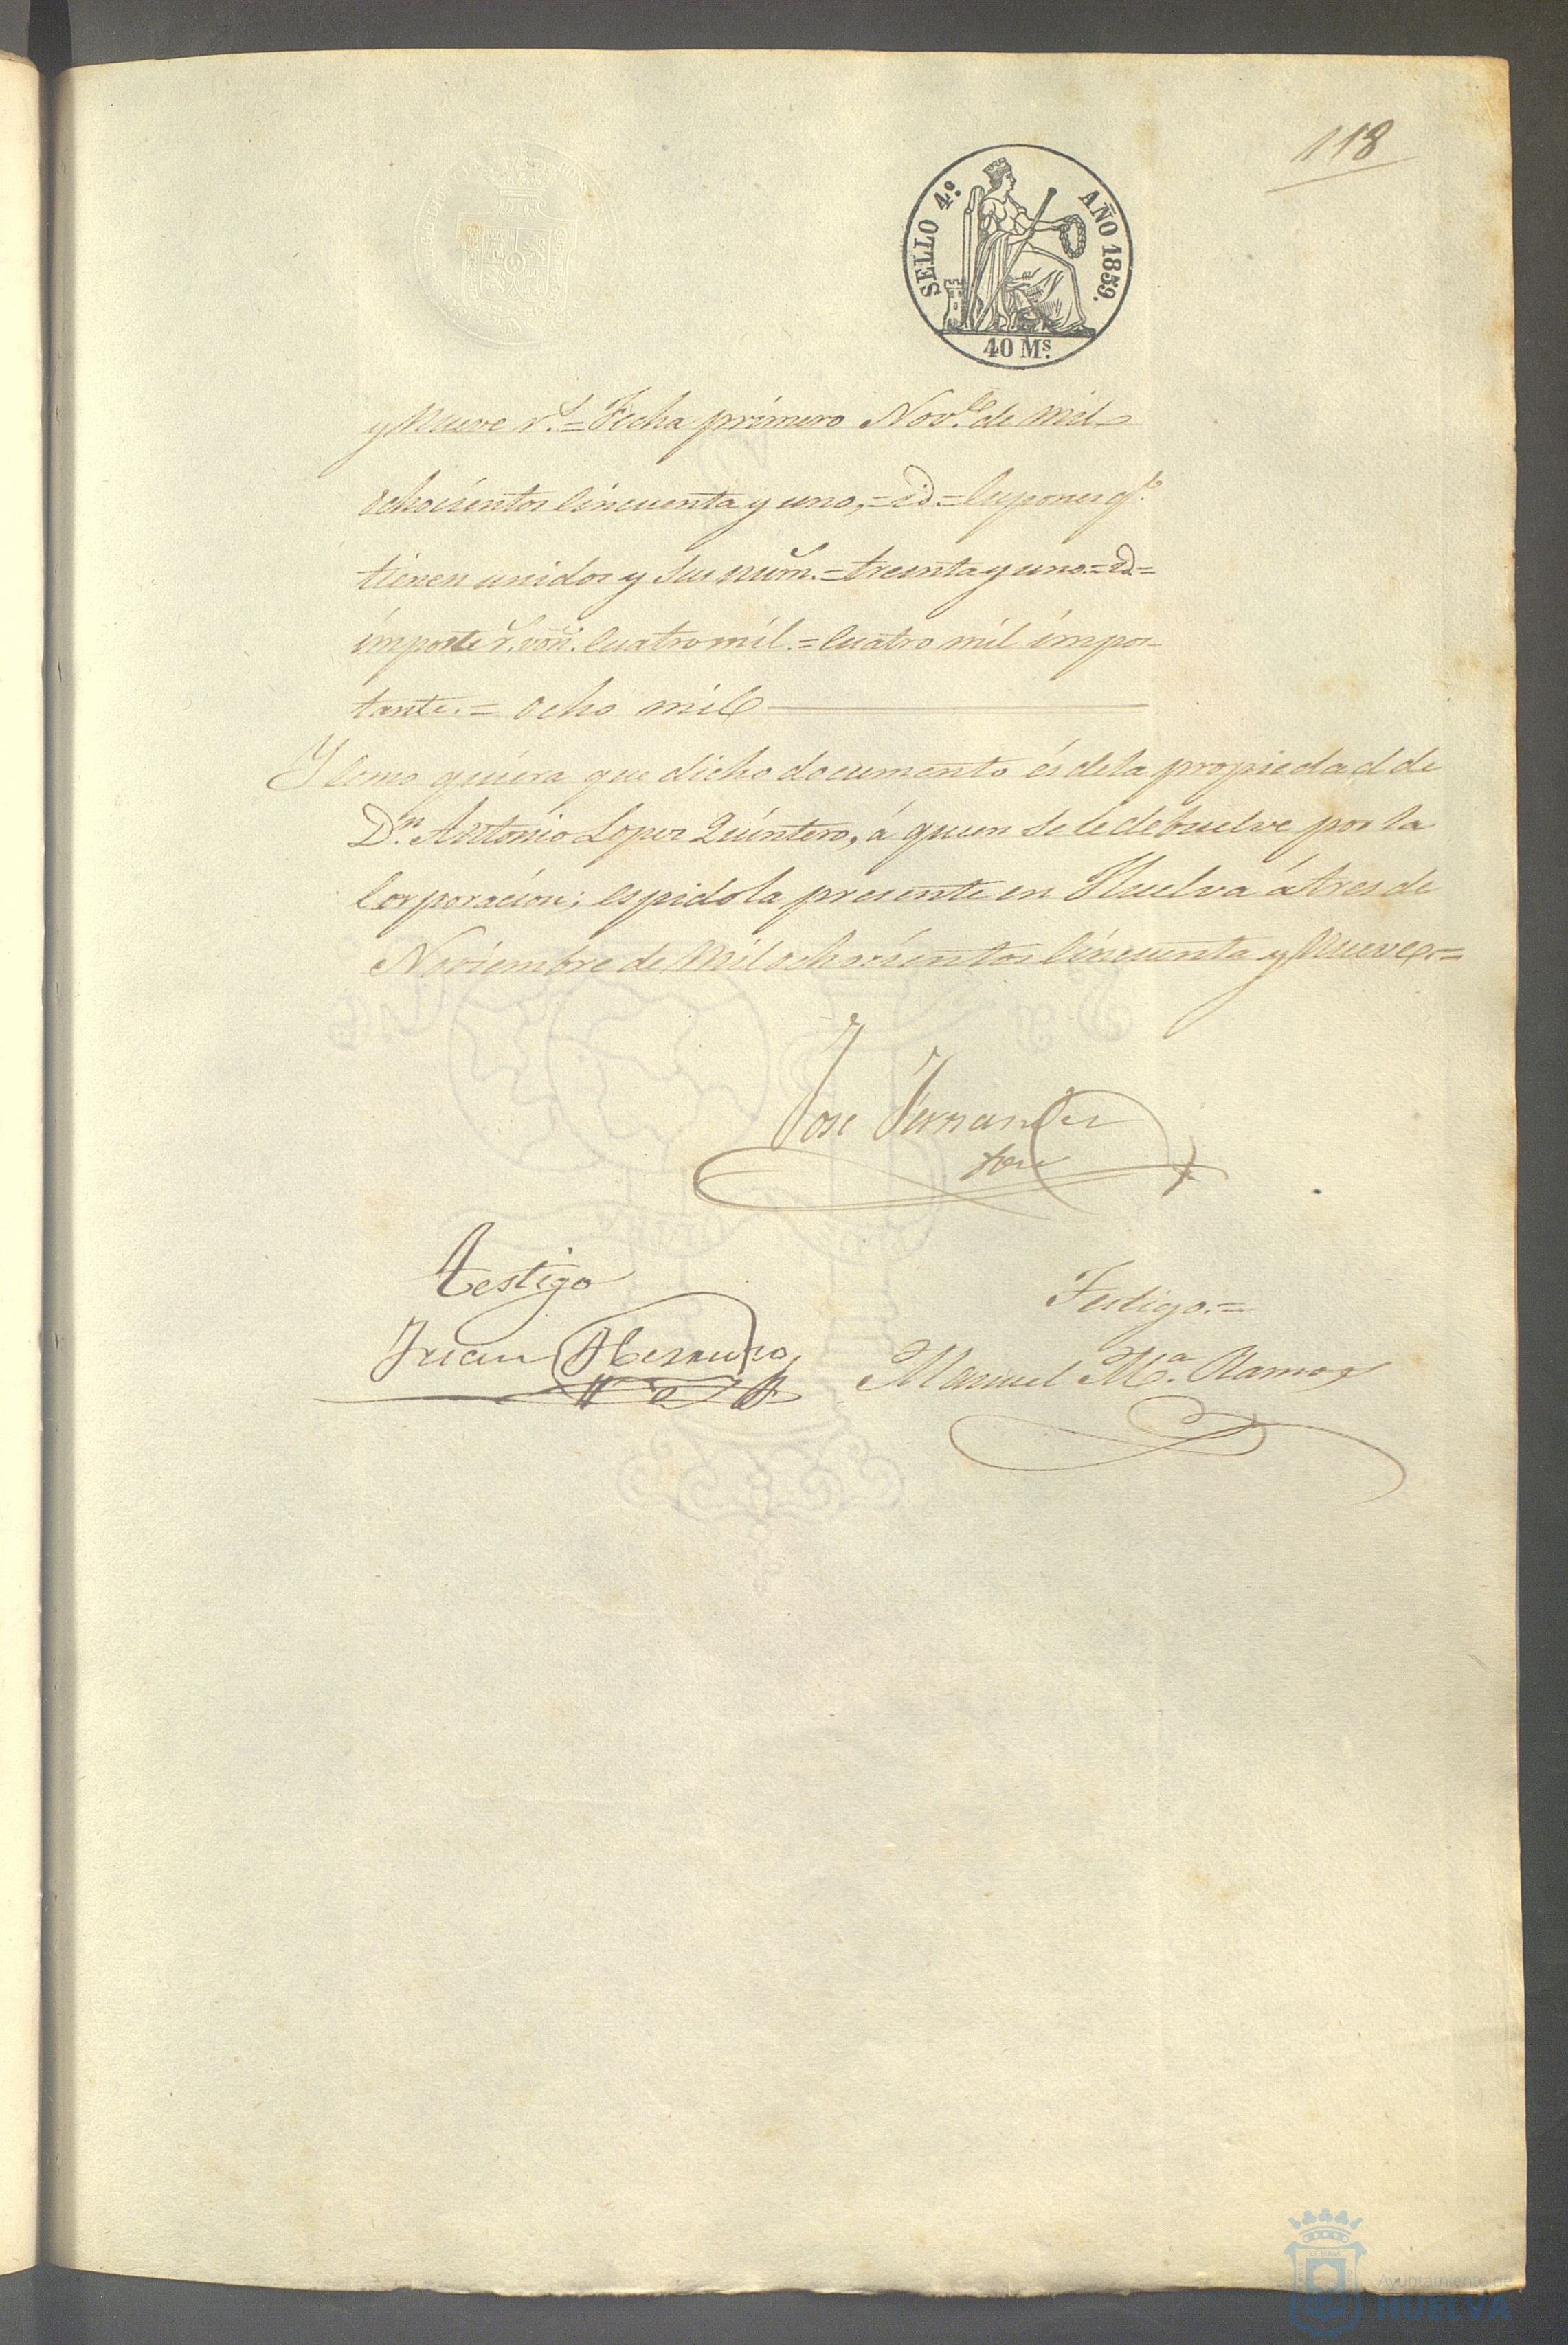 118
SELLO 4º. AÑO 1859.
40 Ms.
y Nueve rs.=Fecha primero Nove. de mil
ochocientos cincuenta y uno,=id=Cupones qe.
tienen unidos y sus núm.=treinta y uno=id=
importe r. von. cuatro mil.=Cuatro mil impor-
tante.= Ocho mil
Y como quiera que dicho documento és de la propiedad de
Dn. Antonio Lopez Quintero, á quien se le debuelve por la
Corporación; espido la presente en Huelva á tres de
Noviembre de Mil ochocientos Cincuenta y Nueve.=
José Fernandez
testigo
Testigo.=
Juan
Manuel Mª. Ramos
Ayuntamiento de
HUELVA